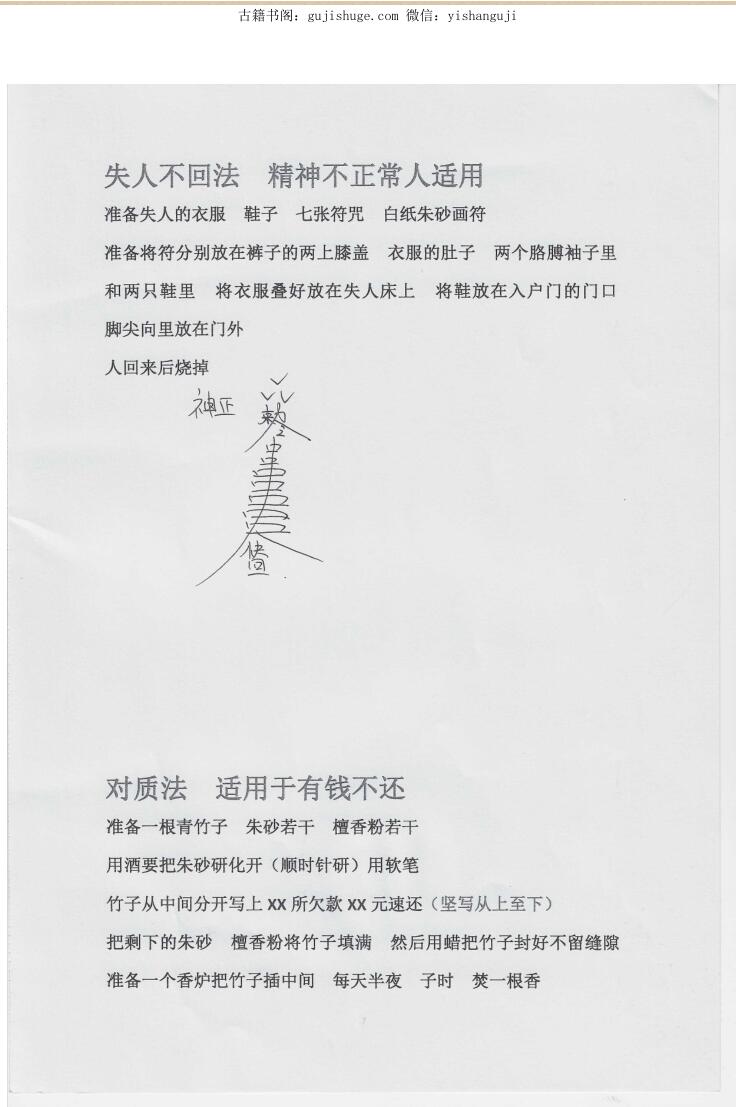 古籍书阁：gujishuge.com 微信：yishanguji
失人不回法　精神不正常人适用
准备失人的衣服　鞋子　七张符咒　白纸朱砂画符
准备将符分别放在裤子的两上膝盖　衣服的肚子　两个胳膊袖子里
和两只鞋里　将衣服叠好放在失人床上　将鞋放在入户门的门口
脚尖向里放在门外
人回来后烧掉
神正
敕
对质法　适用于有钱不还
准备一根青竹子　朱砂若干　檀香粉若干
用酒要把朱砂研化开（顺时针研）用软笔
竹子从中间分开写上 XX 所欠款 XX 元速还（坚写从上至下）
把剩下的朱砂　檀香粉将竹子填满　然后用蜡把竹子封好不留缝隙
准备一个香炉把竹子插中间　每天半夜　子时　焚一根香